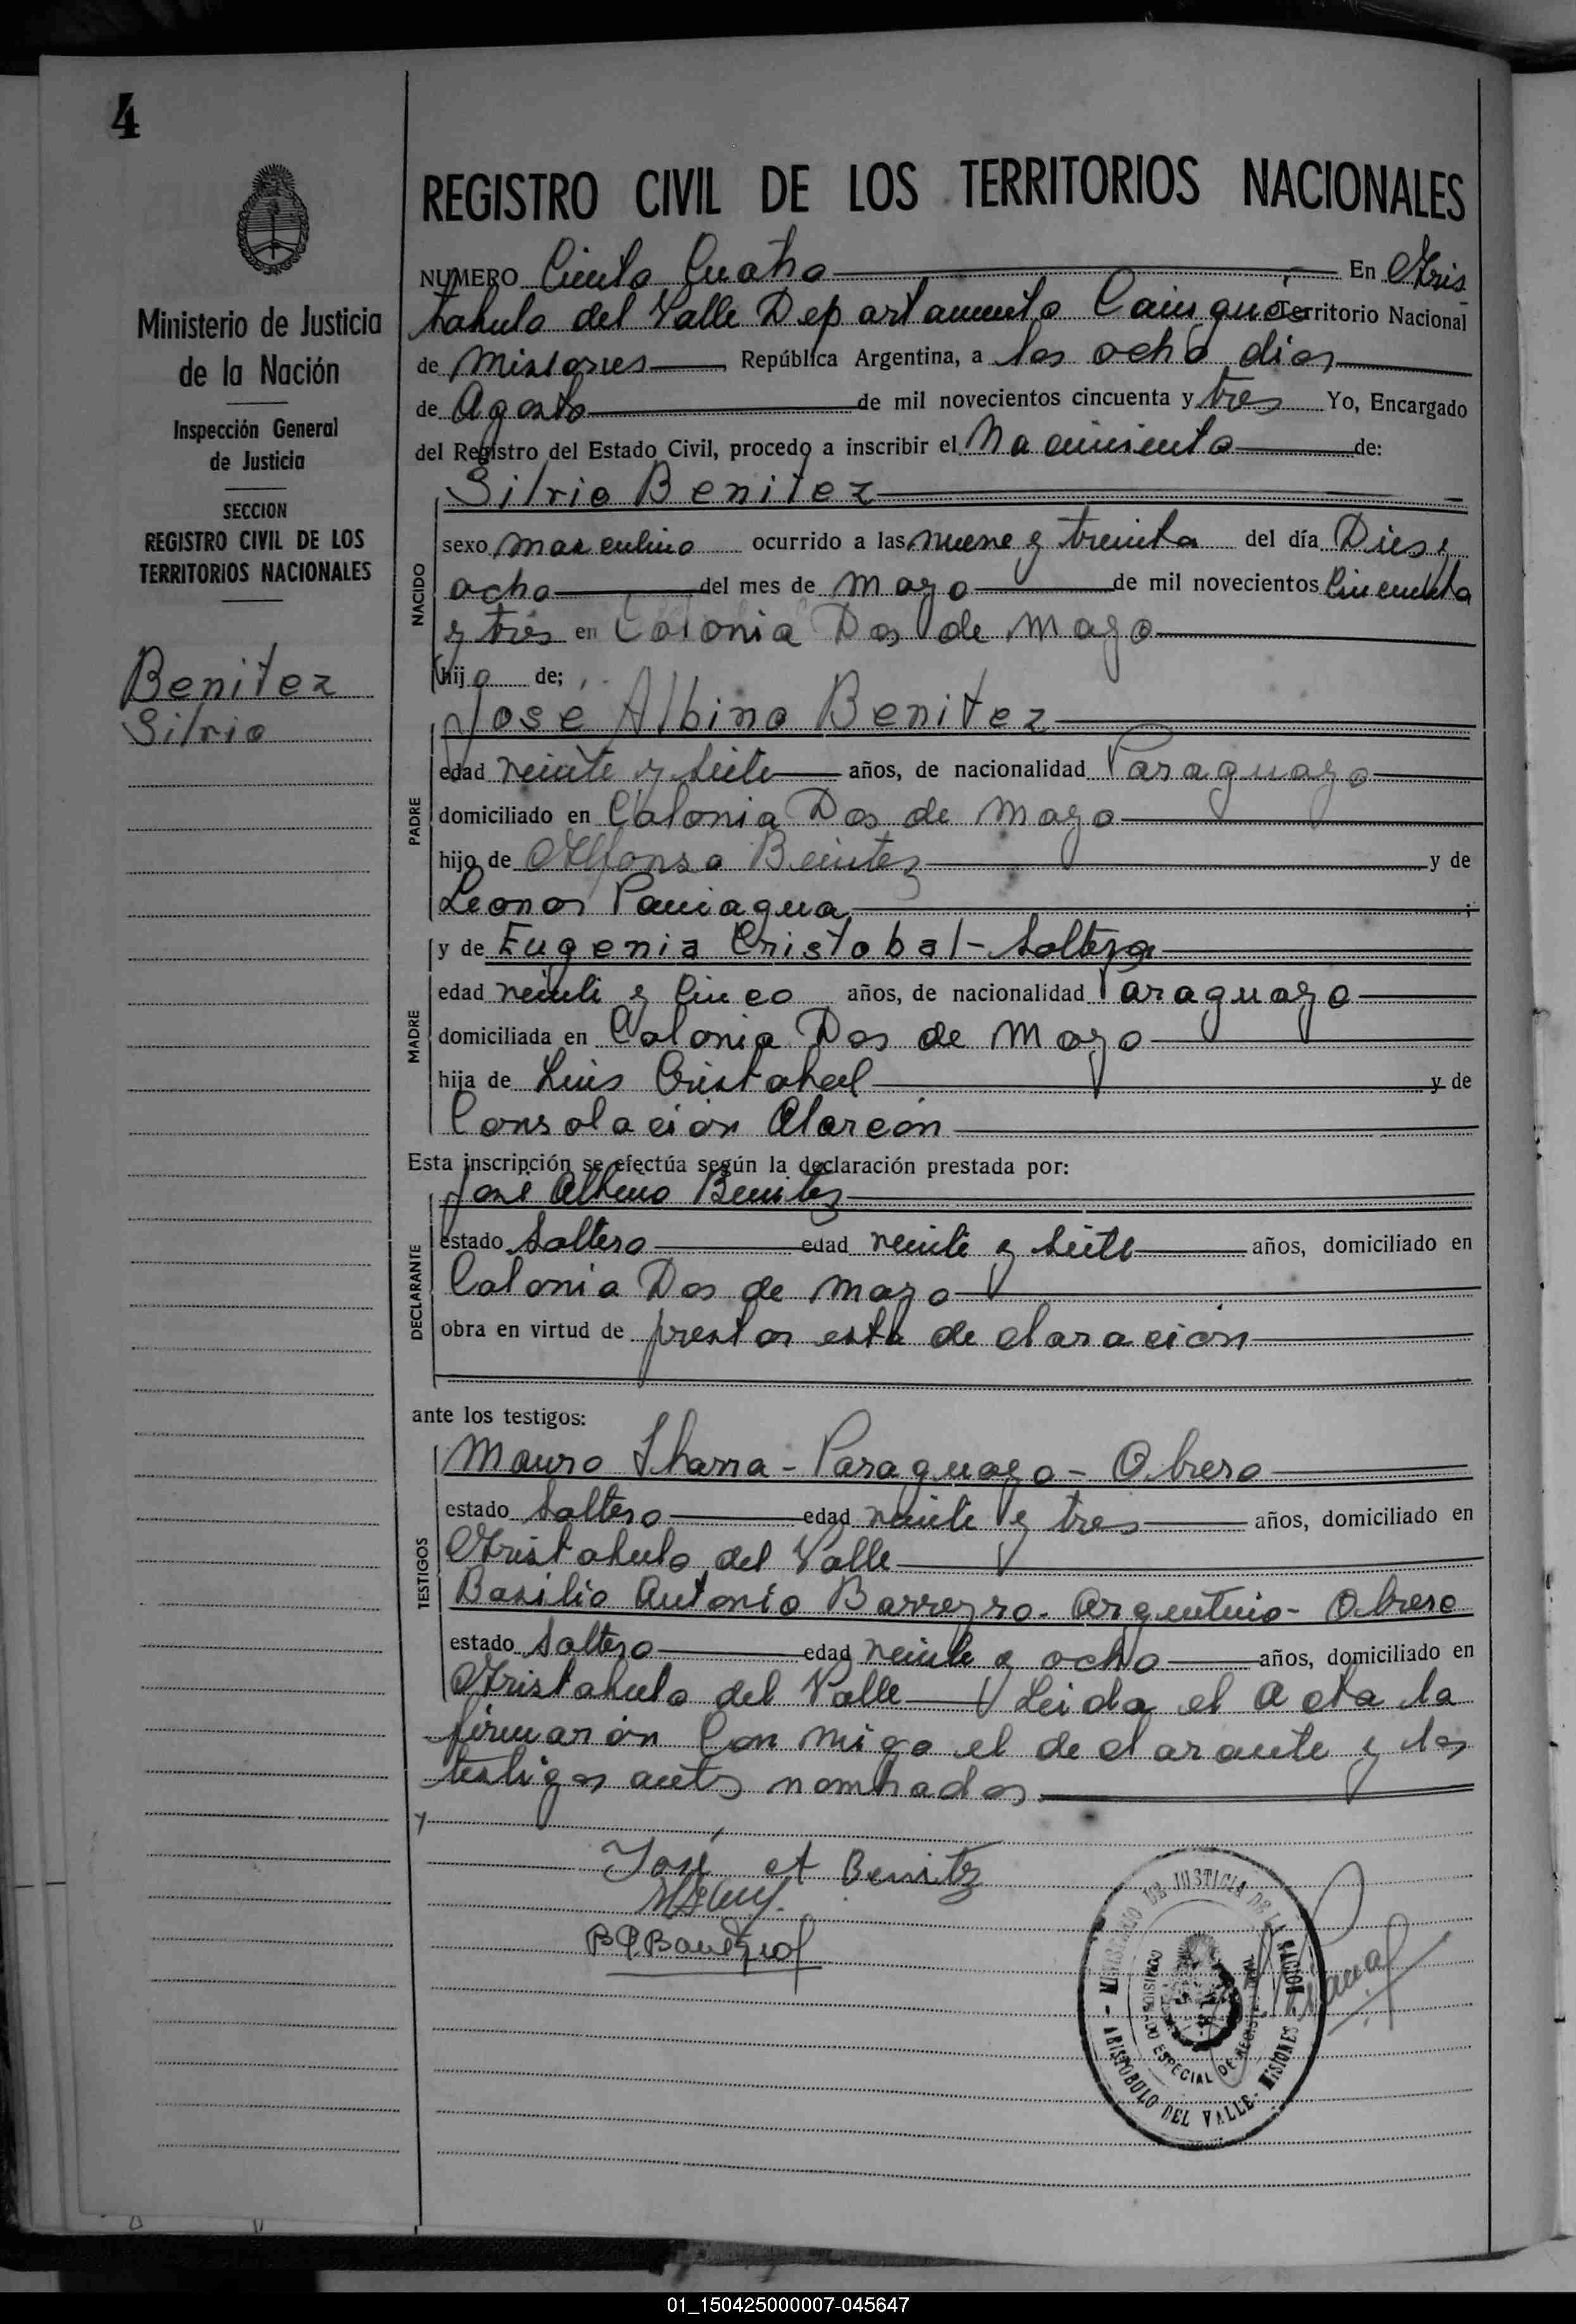 4
REGISTRO CIVIL DE LOS TERRITORIOS NACIONALES
NUMERO Ciento Cuatro En Aris
Ministerio de Justicia
de la Nación
Inspección General
de Justicia
SECCION
REGISTRO CIVIL DE LOS
TERRITORIOS NACIONALES
Benitez
Silvio
tobulo del Valle Departamento Cainguás Territorio Nacional
de Misiones República Argentina, a los ocho dias
de Agosto de mil novecientos cincuenta y tres Yo, Encargado
del Registro del Estado Civil, procedo a inscribir el Nacimiento de:
Silvio Benitez
NACIDO
sexo masculino ocurrido a las nueve y treinta del día Dies y
ocho del mes de mayo de mil novecientos Cincuenta
y tres en Colonia Dos de mayo
hijo de;
Jose Albino Benitez
PADRE
edad veinte y siete años, de nacionalidad Paraguayo
domiciliado en Colonia Dos de mayo
hijo de Alfonso Benitez y de
Leonor Paniagua
y de Eugenia Cristobal - Soltera
MADRE
edad veinte y Cinco años, de nacionalidad Paraguayo
domiciliada en Colonia Dos de mayo
hija de Luis Cristobal y de
Consolación Alarcón
Esta inscripción se efectúa según la declaración prestada por:
José Albino Benitez
DECLARANTE
estado Soltero edad veinte y siete años, domiciliado en
Colonia Dos de mayo
obra en virtud de prestar esta declaración
ante los testigos:
Mauro Ibarra - Paraguayo - Obrero
TESTIGOS
estado Soltero edad veinte y tres años, domiciliado en
Aristobulo del Valle
Basilio Antonio Barreyro - Argentino - Obrero
estado Soltero edad veinte y ocho años, domiciliado en
Aristobulo del Valle Leida el Acta la
firmarón Con migo el declarante y los
testigos antes nombrados
José A Benitz
MINISTERIO DE JUSTICIA DE LA NACION
ARISTOBULO DEL VALLE - MISIONES
01_150425000007-045647